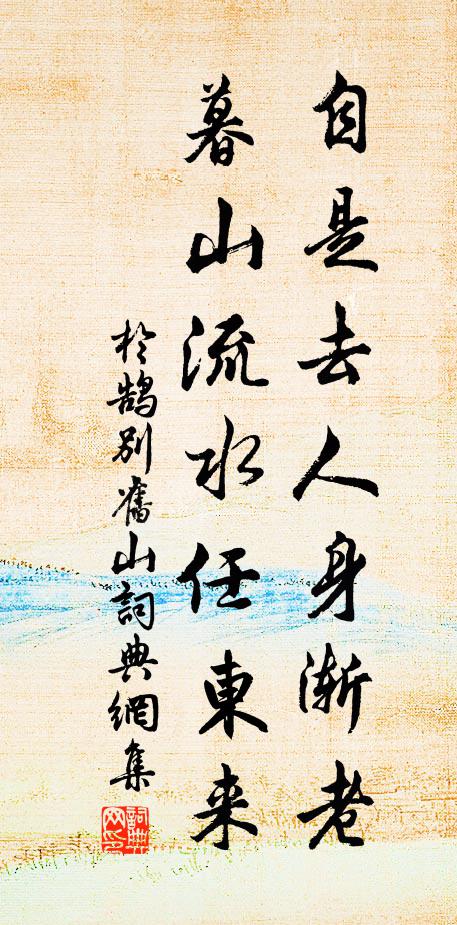 自是去人身渐老
暮山流水任東来
於鹄别舊山詞典網集
詞典网印